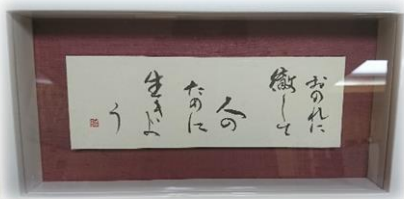 おのれに
徹して
人の
ために
生きよ
う